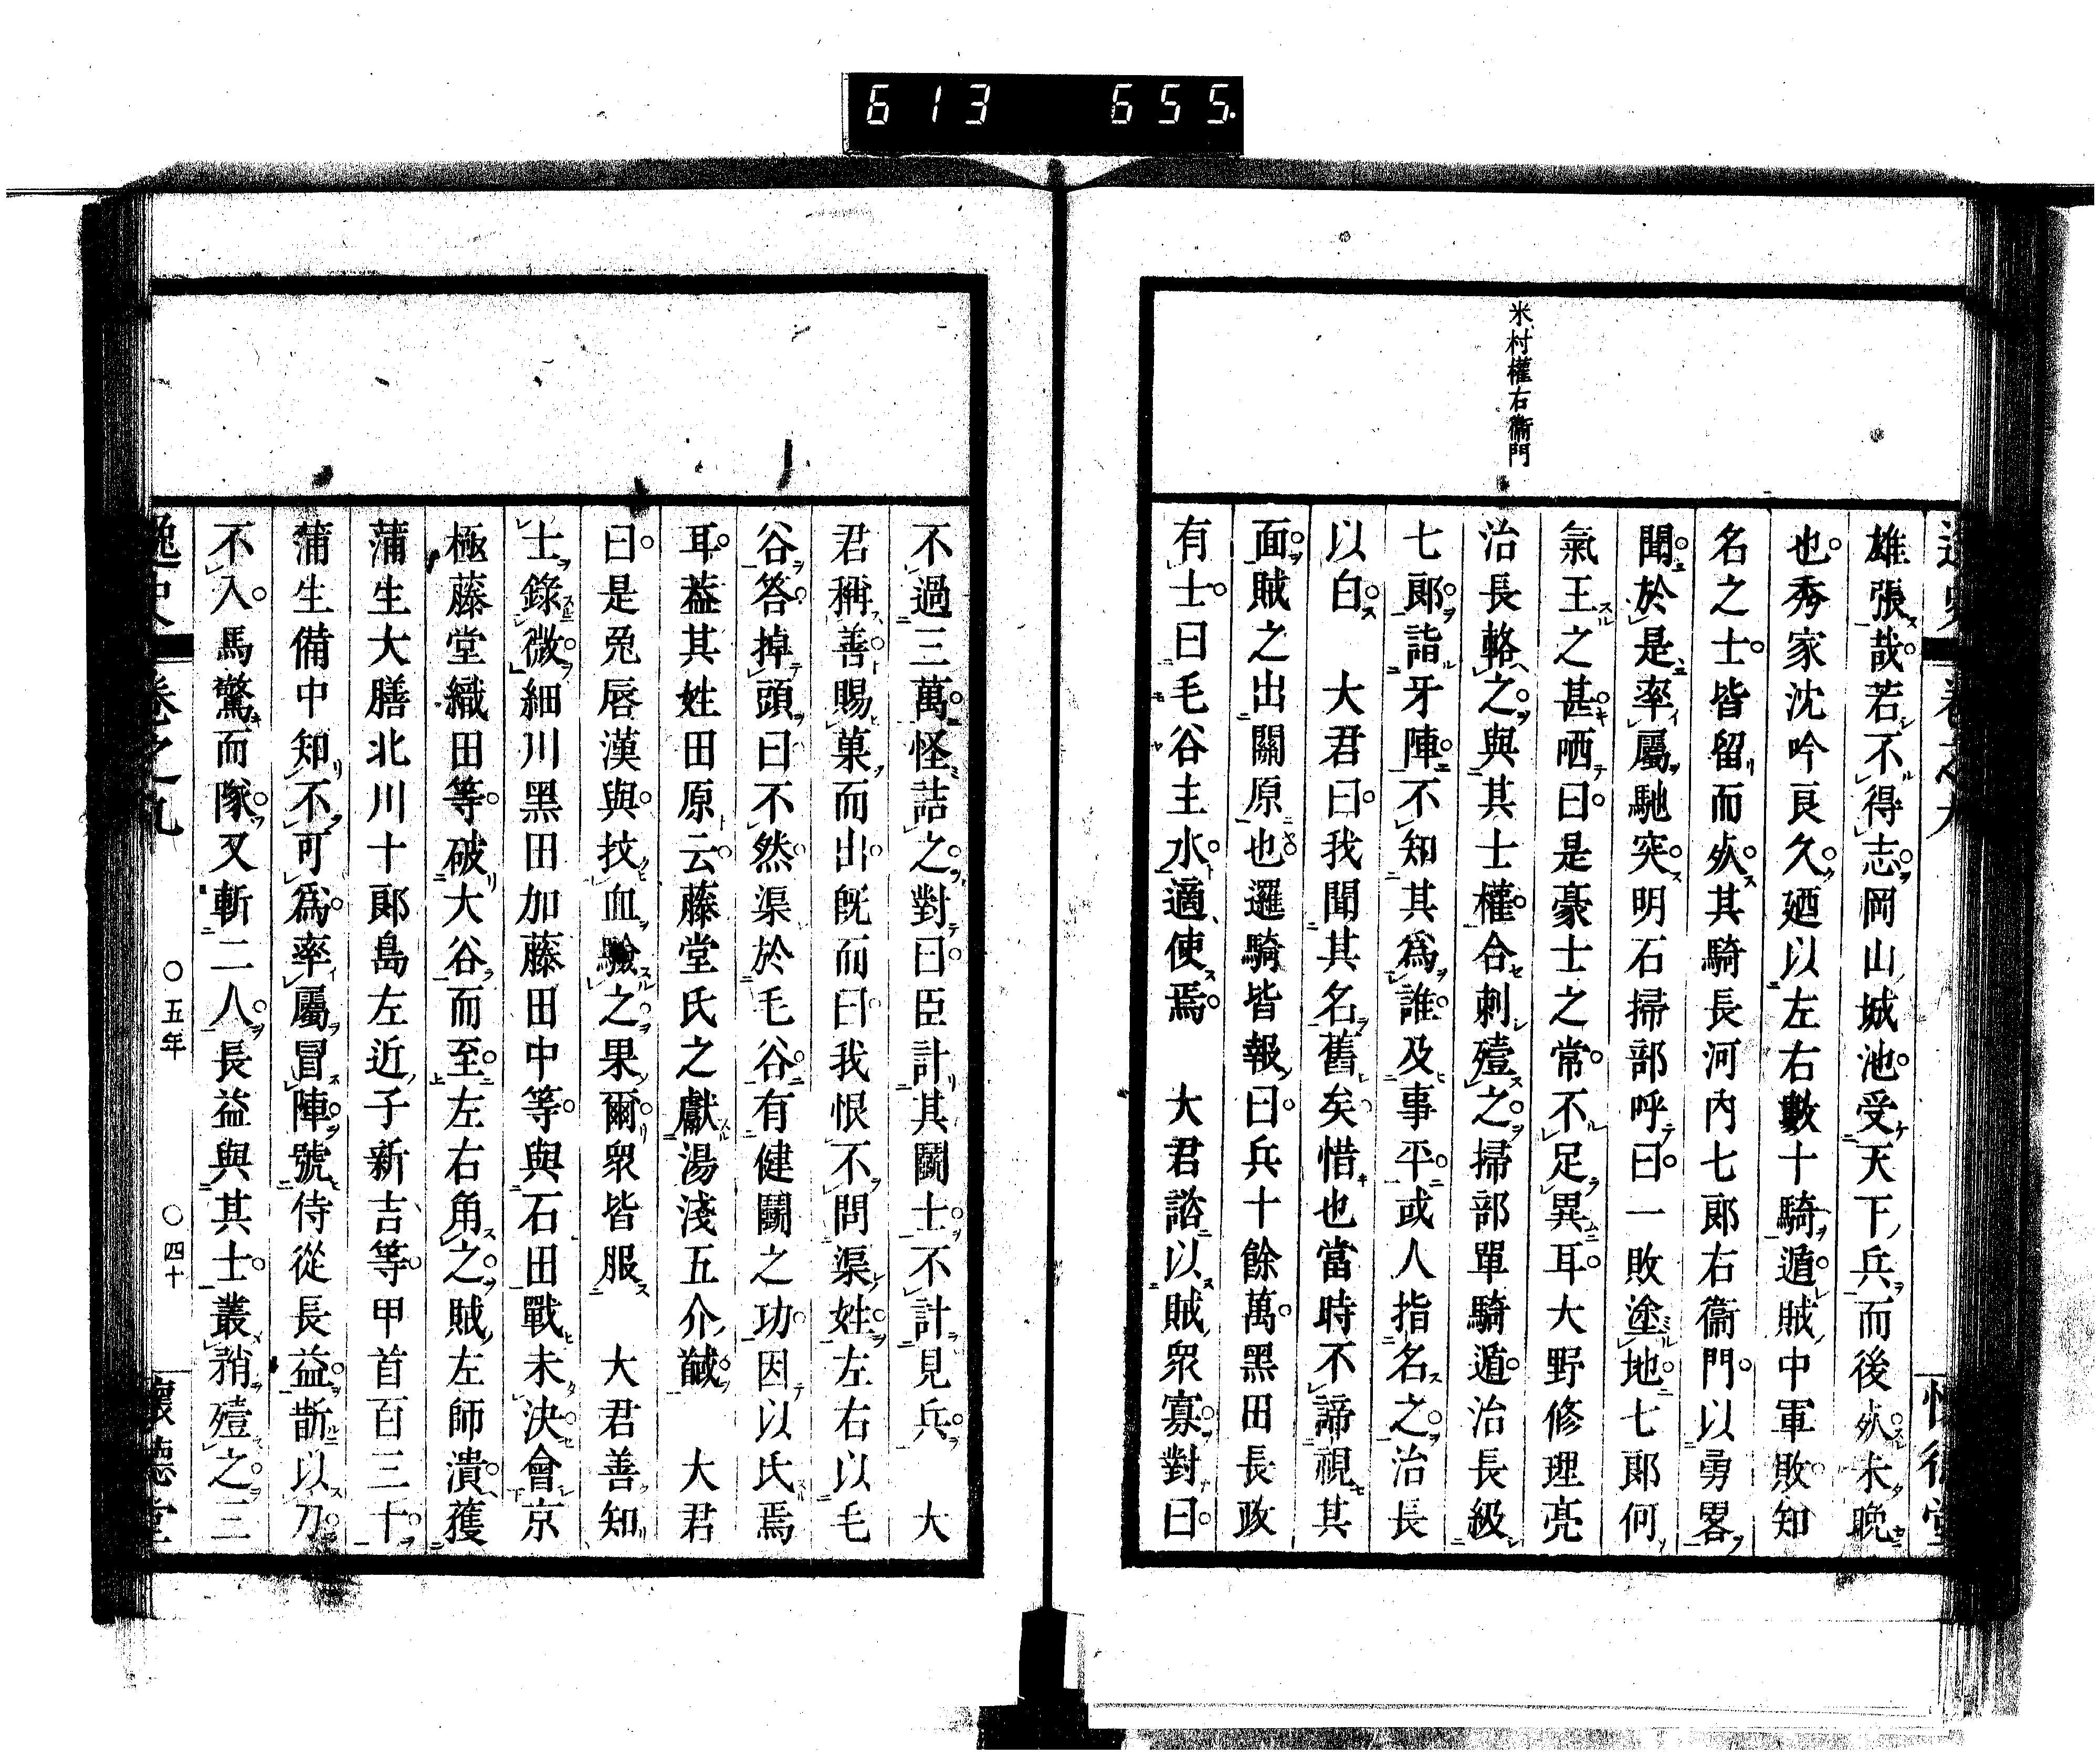 613 655.
米村權右衞門
雄張哉若不得志岡山城池受天下兵而後𣦸未晚
也秀家沈吟良久廼以左右數十騎遁賊中軍敗知
名之士皆留而𣦸其騎長河内七郎右衞門以勇畧
聞於是率屬馳突明石掃部呼曰一敗塗地七郎何
氣王之甚哂曰是豪士之常不足異耳大野修理亮
治長輅之與其士權合刺殪之掃部單騎遁治長級
七郎詣牙陣不知其爲誰及事平或人指名之治長
以白　大君曰我聞其名舊矣惜也當時不諦視其
面賊之出關原也邏騎皆報曰兵十餘萬黑田長政
有士曰毛谷主水適使焉　大君諮以賊眾寡對曰
不過三萬怪詰之對曰臣計其鬭士不計見兵　大
君稱善賜菓而出既而曰我恨不問渠姓左右以毛
谷答掉頭曰不然渠於毛谷有健鬭之功因以氏焉
耳葢其姓田原云藤堂氏之獻湯淺五介馘　大君
曰是兎唇漢與抆血驗之果爾眾皆服　大君善知
士錄微細川黑田加藤田中等與石田戰未決會京
極藤堂織田等破大谷而至左右角之賊左師潰獲
蒲生大膳北川十郎島左近子新吉等甲首百三十
蒲生備中知不可爲率屬冒陣號侍從長益斮以刀
不入馬驚而隊又斬二人長益與其士叢矟殪之三
逸史　卷之九　〇五年　〇四十　懷德堂